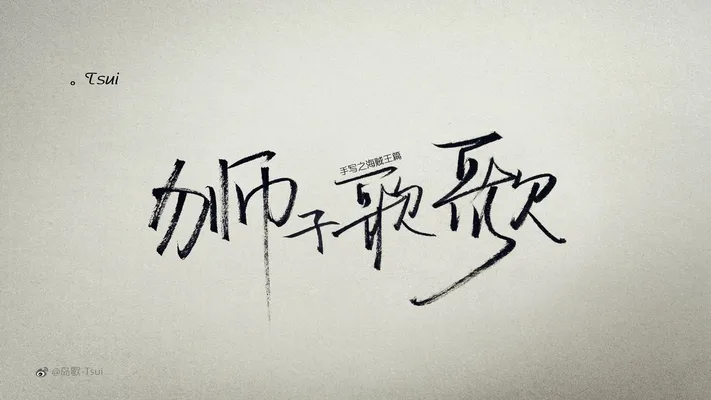 。Tsui
手写之海贼王篇
狮子歌歌
@岛歌·Tsui